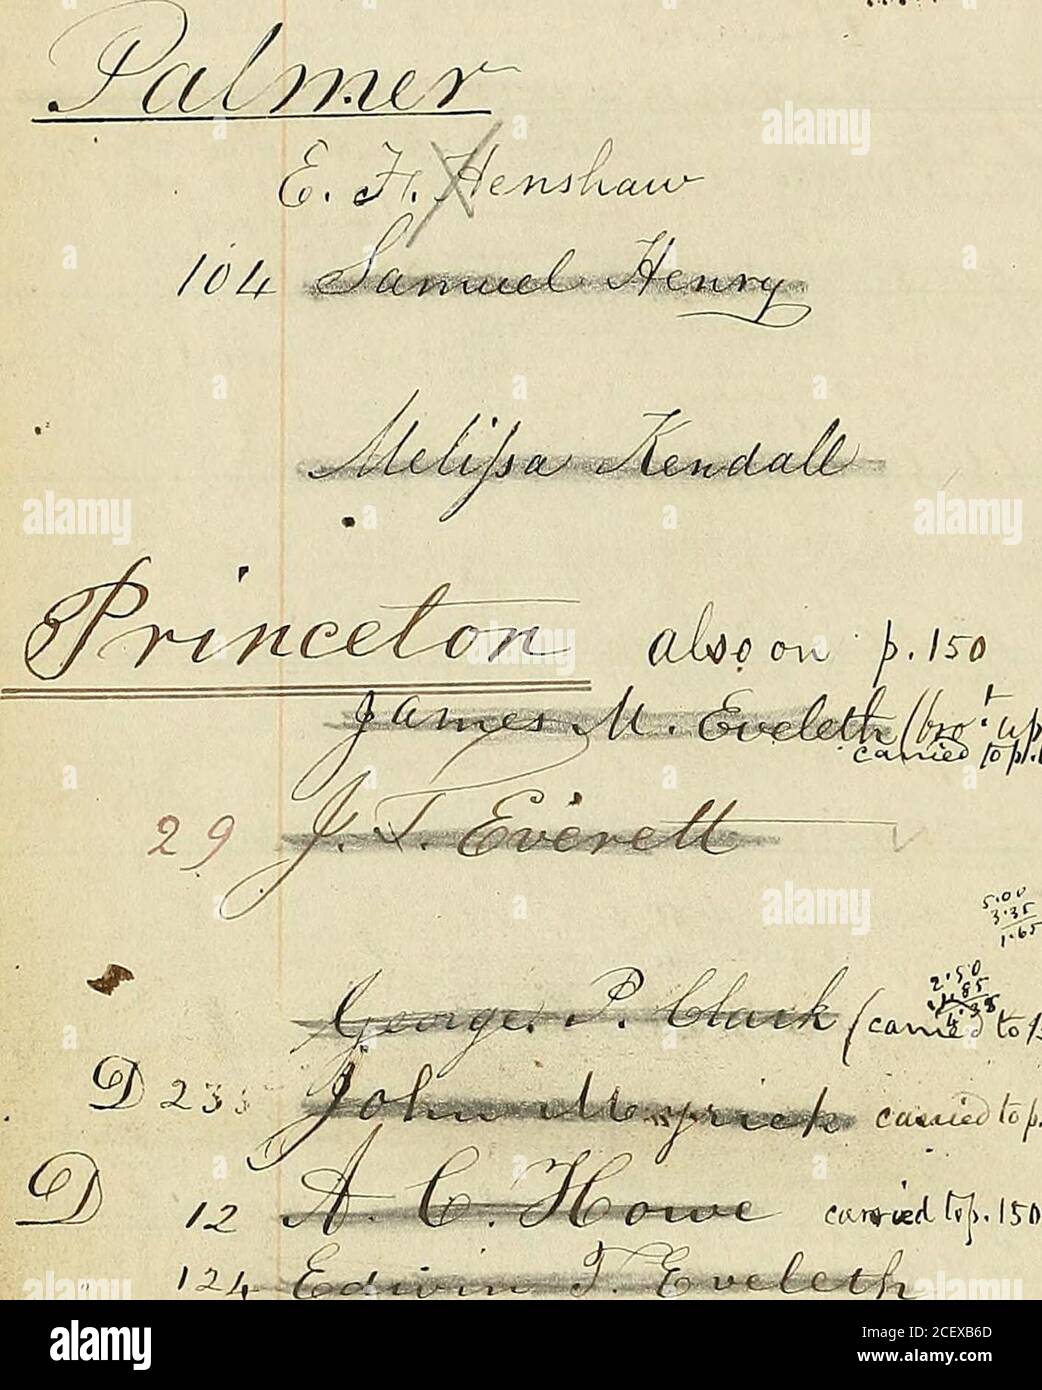 Palmer
E. F. Henshaw
104 Samuel Henry
Melissa Kendall
Princeton also on p. 150
James M. Eveleth (bro't up
carried to p.
29 J. T. Everett
5.00
3.35
1.65
2.50
George P. Clark (carried to
D 233 John Myrick carried to p.
D 12 A. C. Howe carried to p. 150
124 Edwin T. Eveleth
alamy
Image ID: 2CEXB6D
www.alamy.com